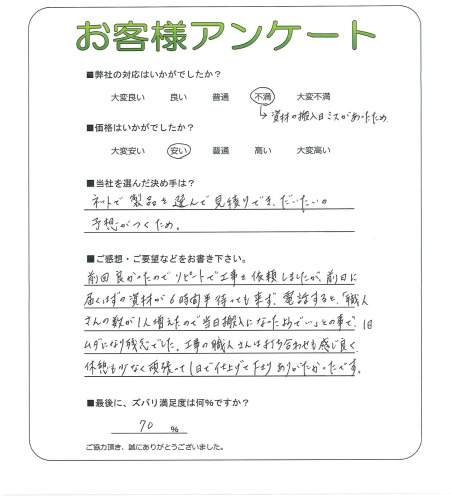 お客様アンケート
■弊社の対応はいかがでしたか？
大変良い　良い　普通　不満　大変不満
↳資材の搬入日ミスがあったため
■価格はいかがでしたか？
大変安い　安い　普通　高い　大変高い
■当社を選んだ決め手は？
ネットで製品を選んで見積りでき、だいたいの
予想がつくため。
■ご感想・ご要望などをお書き下さい。
前回良かったのでリピートで工事を依頼しましたが、前日に
届くはずの資材が6時間半待っても来ず、電話すると、「職人
さんの数が1人増えたので当日搬入になったようで」との事で、1日
ムダになり残念でした。工事の職人さんは打ち合わせも感じ良く
休憩も少なく頑張って1日で仕上げて下さりありがたかったです。
■最後に、ズバリ満足度は何％ですか？
70 ％
ご協力頂き、誠にありがとうございました。